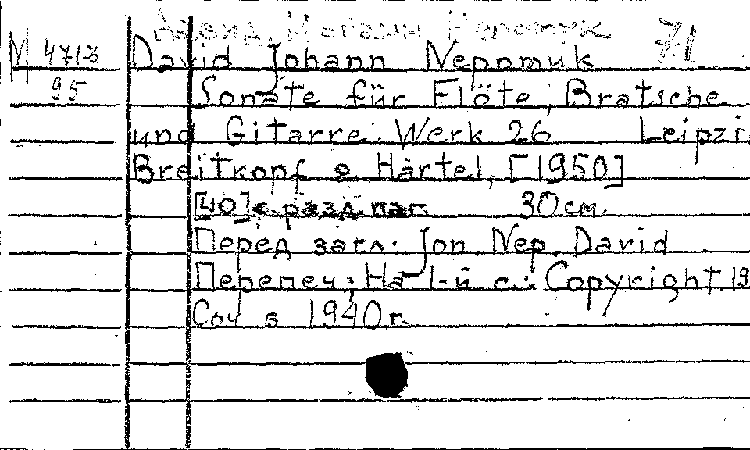 Давид, Иоганн Непомук 71
М 4713 David Johann Nepomuk
95 Sonate für Flöte, Bratsche
und Gitarre. Werk 26 Leipzi
Breitkopf & Härtel, [1950]
[40] с. разд. паг. 30 см.
Перед загл.: Joh. Nep. David
Перепеч.; На 1-й с.: Copyright 19
Соч в 1940 г.